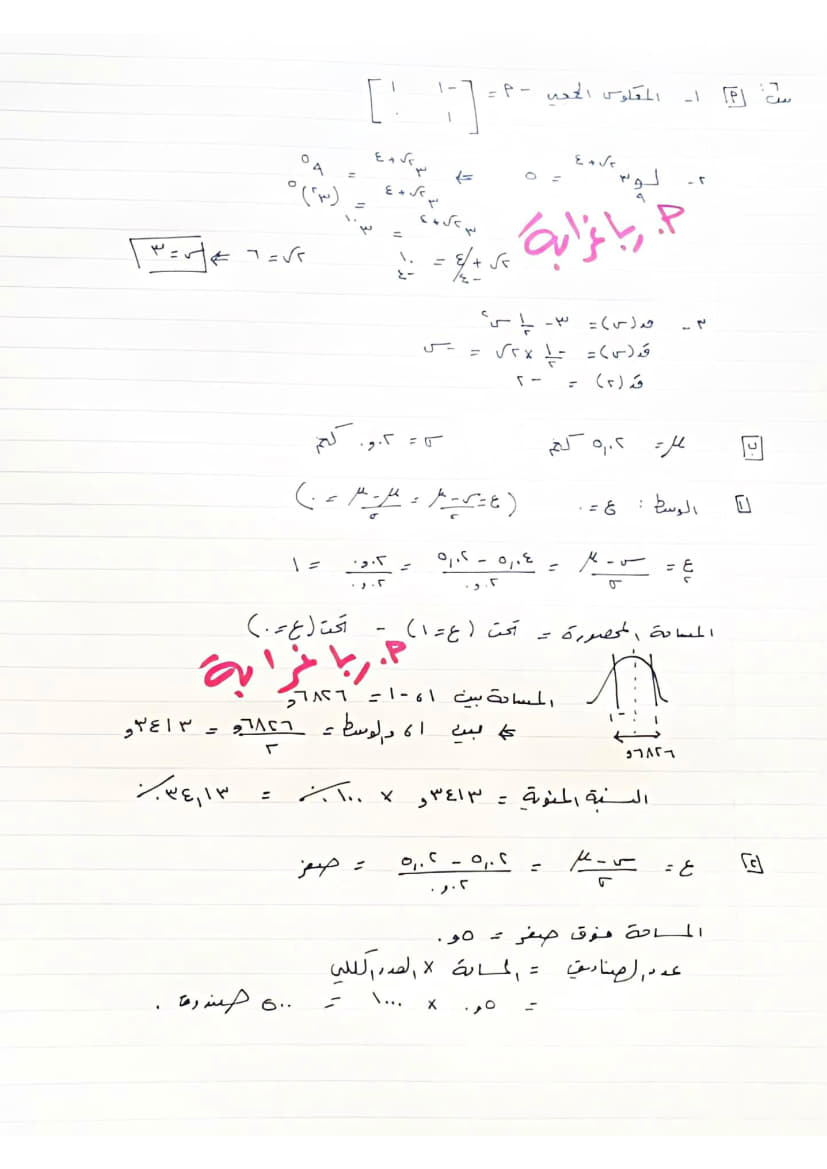 س٦: أ ١- المعكوس الجمعي -٢ = [ ١ ١- ٠ ١ ]
٢- لو٩ ٣^(٢س+٤) = ٥ ⇐ ٣^(٢س+٤) = ٩^٥
٣^(٢س+٤) = (٣^٢)^٥
٣^(٢س+٤) = ٣^١٠
م. ربا غرابة
٢س + ٤ - ٤ = ١٠ - ٤ ٢س = ٦ ⇐ س = ٣
٣- ق(س) = ٣ - ١/٢ س^٢
قَ(س) = -١/٢ × ٢س = -س
قَ(٢) = -٢
ب μ = ٥,٠٢ كغم σ = ٠,٠٢ كغم
١ الوسط: ع = ٠ (ع = (س-μ)/σ = (μ-μ)/σ = ٠)
ع٢ = (س-μ)/σ = (٥,٠٤ - ٥,٠٢)/٠,٠٢ = ٠,٠٢/٠,٠٢ = ١
المساحة المحصورة = تحت (ع=١) - تحت (ع=٠)
م. ربا غرابة
المساحة بين ١ ، -١ = ٦٨٢٦و
١- ١
⇐ بين ١ ، والوسط = ٦٨٢٦و/٢ = ٣٤١٣و
٦٨٢٦و
النسبة المئوية = ٣٤١٣و × ١٠٠٪ = ٣٤,١٣٪
٢ ع = (س-μ)/σ = (٥,٠٢ - ٥,٠٢)/٠,٠٢ = صفر
المساحة فوق صفر = ٠,٥
عدد الصناديق = المساحة × العدد الكلي
= ٠,٥ × ١٠٠٠ = ٥٠٠ صندوق.